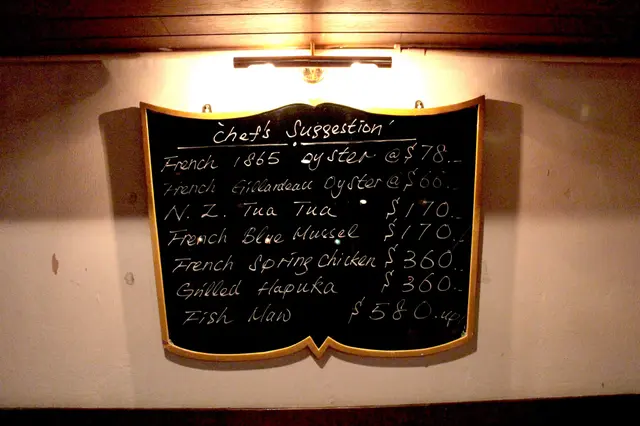 'Chef's Suggestion'
French 1865 oyster @ $78.-
French Gillardeau Oyster @ $66.-
N. Z. Tua Tua $170.-
French Blue Mussel $170.-
French Spring Chicken $360.-
Grilled Hapuka $360.-
Fish Maw $580.up